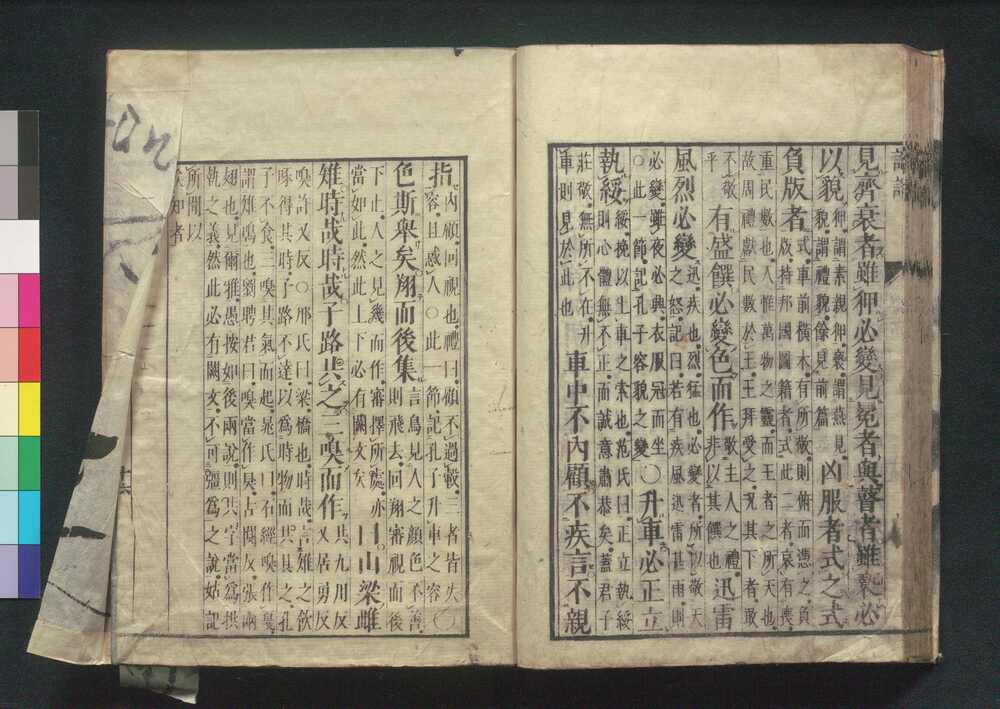 見齊衰者雖狎必變見冕者與瞽者雖褻必
以貌狎謂素親狎褻謂燕見
貌謂禮貌餘見前篇凶服者式之式
負版者式車前橫木有所敬則俯而憑之負
版持邦國圖籍者式此二者哀有喪
重民數也人惟萬物之靈而王者之所天也
故周禮獻民數於王王拜受之况其下者敢
不敬
乎有盛饌必變色而作敬主人之禮
非以其饌也迅雷
風烈必變迅疾也烈猛也必變者所以敬天
之怒記曰若有疾風迅雷甚雨則
必變雖夜必興衣服冠而坐
○此一節記孔子容貌之變○升車必正立
執綏綏挽以上車之索也范氏曰正立執綏
則心體無不正而誠意肅恭矣蓋君子
莊敬無所不在升
車則見於此也車中不內顧不疾言不親
指內顧回視也禮曰顧不過轂三者皆失
容且惑人○此一節記孔子升車之容○
色斯舉矣翔而後集言鳥見人之顏色不善
則飛去回翔審視而後
下止人之見幾而作審擇所處亦
當如此然此上下必有闕文矣曰山梁雌
雉時哉時哉子路共之三嗅而作共九用反
又居勇反
嗅許又反○邢氏曰梁橋也時哉言雉之飲
啄得其時子路不達以為時物而共具之孔
子不食三嗅其氣而起晁氏曰石經嗅作戛
謂雉鳴也劉聘君曰嗅當作狊古闃反張兩
翅也見爾雅愚按如後兩說則共字當為拱
執之義然此必有闕文不可彊為之說姑記
所聞以
俟知者